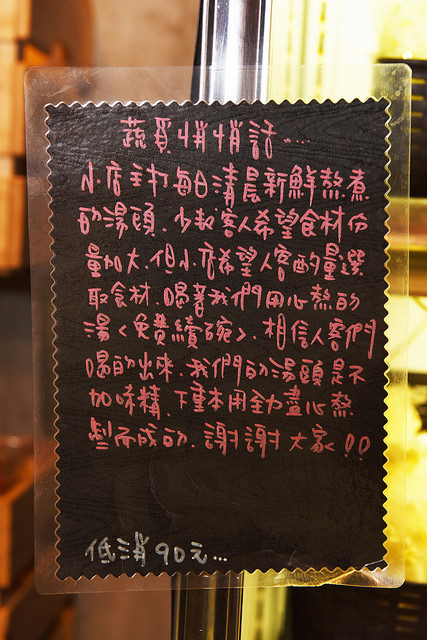 蔬食悄悄話....
小店主打每日清晨新鮮熬煮
的湯頭.少數客人希望食材份
量加大.但小店希望人客酌量選
取食材.喝著我們用心熬的
湯<免費續碗>.相信人客們
喝的出來.我們的湯頭是不
加味精.下重本用全力盡心熬
製而成的.謝謝大家!!
低消90元...